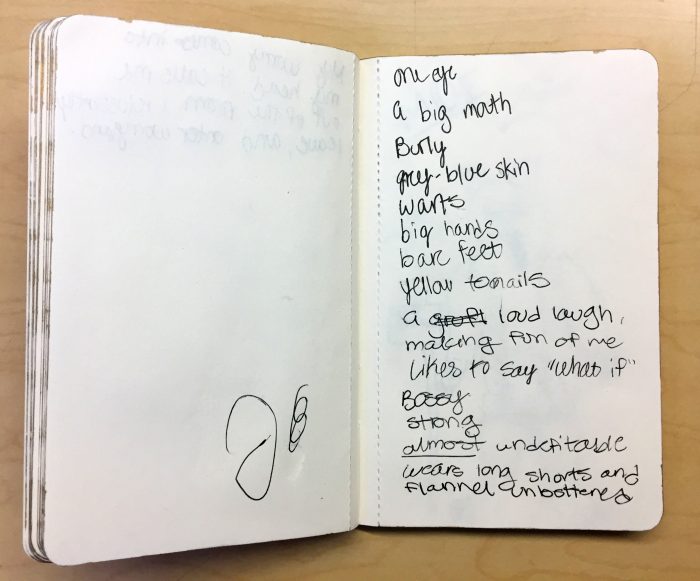 one eye
a big mouth
Burly
grey-blue skin
warts
big hands
bare feet
yellow toenails
a loud laugh,
making fun of me
likes to say "what if"
Bossy
strong
almost undefitable
wears long shorts and
flannel unbottened